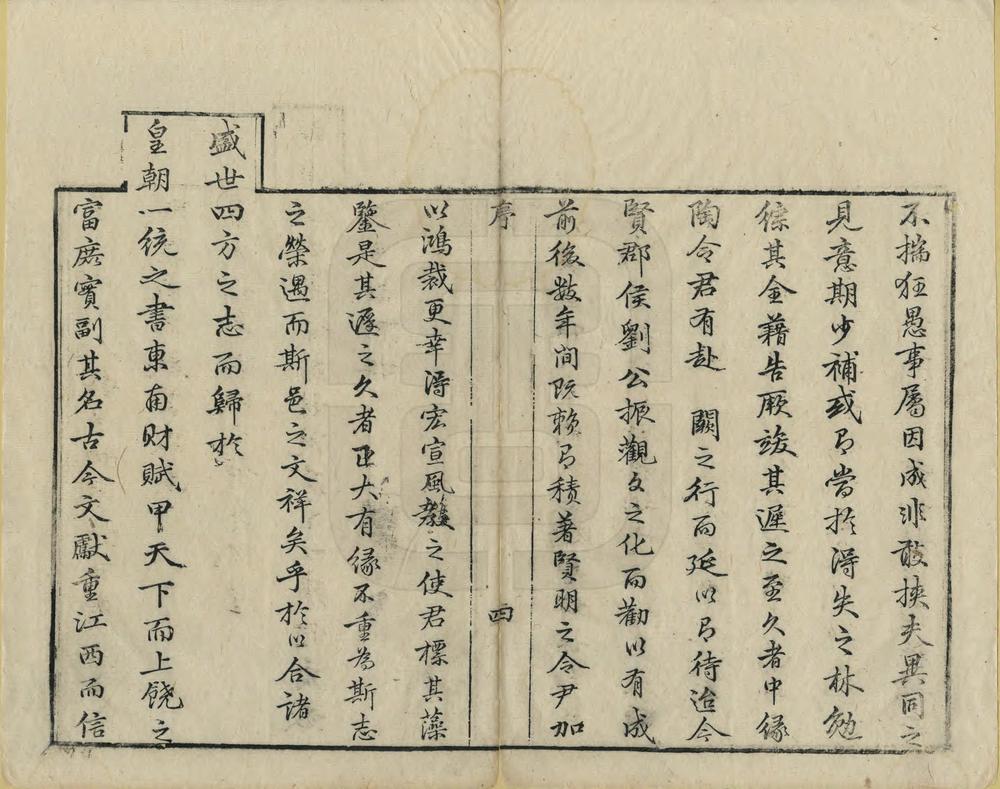 不揣狂愚事屬因成非敢挾夫異同之
見意期少補或有當於得失之林勉
綜其全藉告厥竣其遲之至久者中緣
陶令君有赴 闕之行而延以有待迨今
賢郡侯劉公振觀文之化而勸以有成
前後数年間既賴有積著賢明之令尹加
序
四
以鴻裁更幸得宏宣風教之使君標其藻
鑒是其遲之久者正大有緣不重為斯志
之榮遇而斯邑之文祥矣乎於以合諸
盛世四方之志而歸於
皇朝一統之書東南财賦甲天下而上饒之
富庶實副其名古今文獻重江西而信